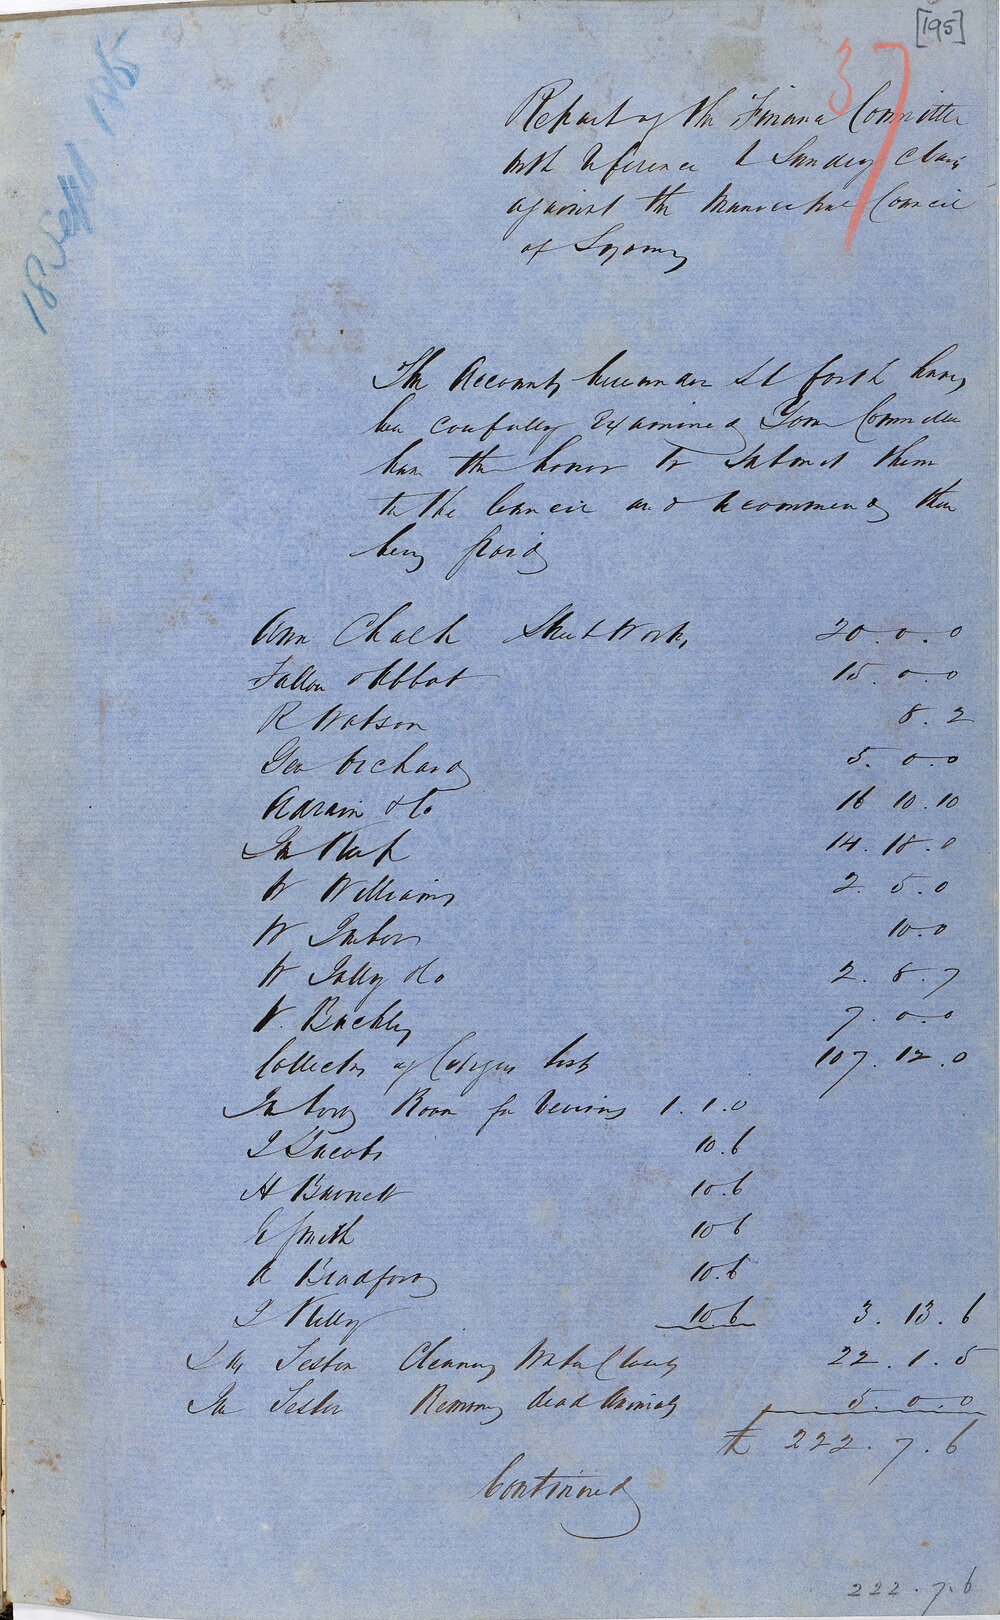 [195]
37
18 Sept 1865
Report of the Finance Committee
with reference to Sundry Claims
against the Municipal Council
of Sydney
The Accounts hereunder set forth having
been carefully Examined Your Committee
have the honor to submit them
to the Council and recommend their
being paid
Ann Chalk Street Works 20.0.0
Fallon & Abbot 15.0.0
R Watson 8.2
Geo Orchard 5.0.0
Adrain & Co 16 10.10
14.18.0
W Williams 2.5.0
W 10.0
W Co 2.8.7
W. Buckley 7.0.0
Collector of Citizens lists 107.12.0
Room for 1.1.0
Jacobs 10.6
H Barnett 10.6
Smith 10 6
Bradford 10.6
Kelly 10 6 3.13.6
Cleaning Water Closets 22.1.5
Removing dead Animals 5.0.0
£ 222.7.6
Continued
222.7.6